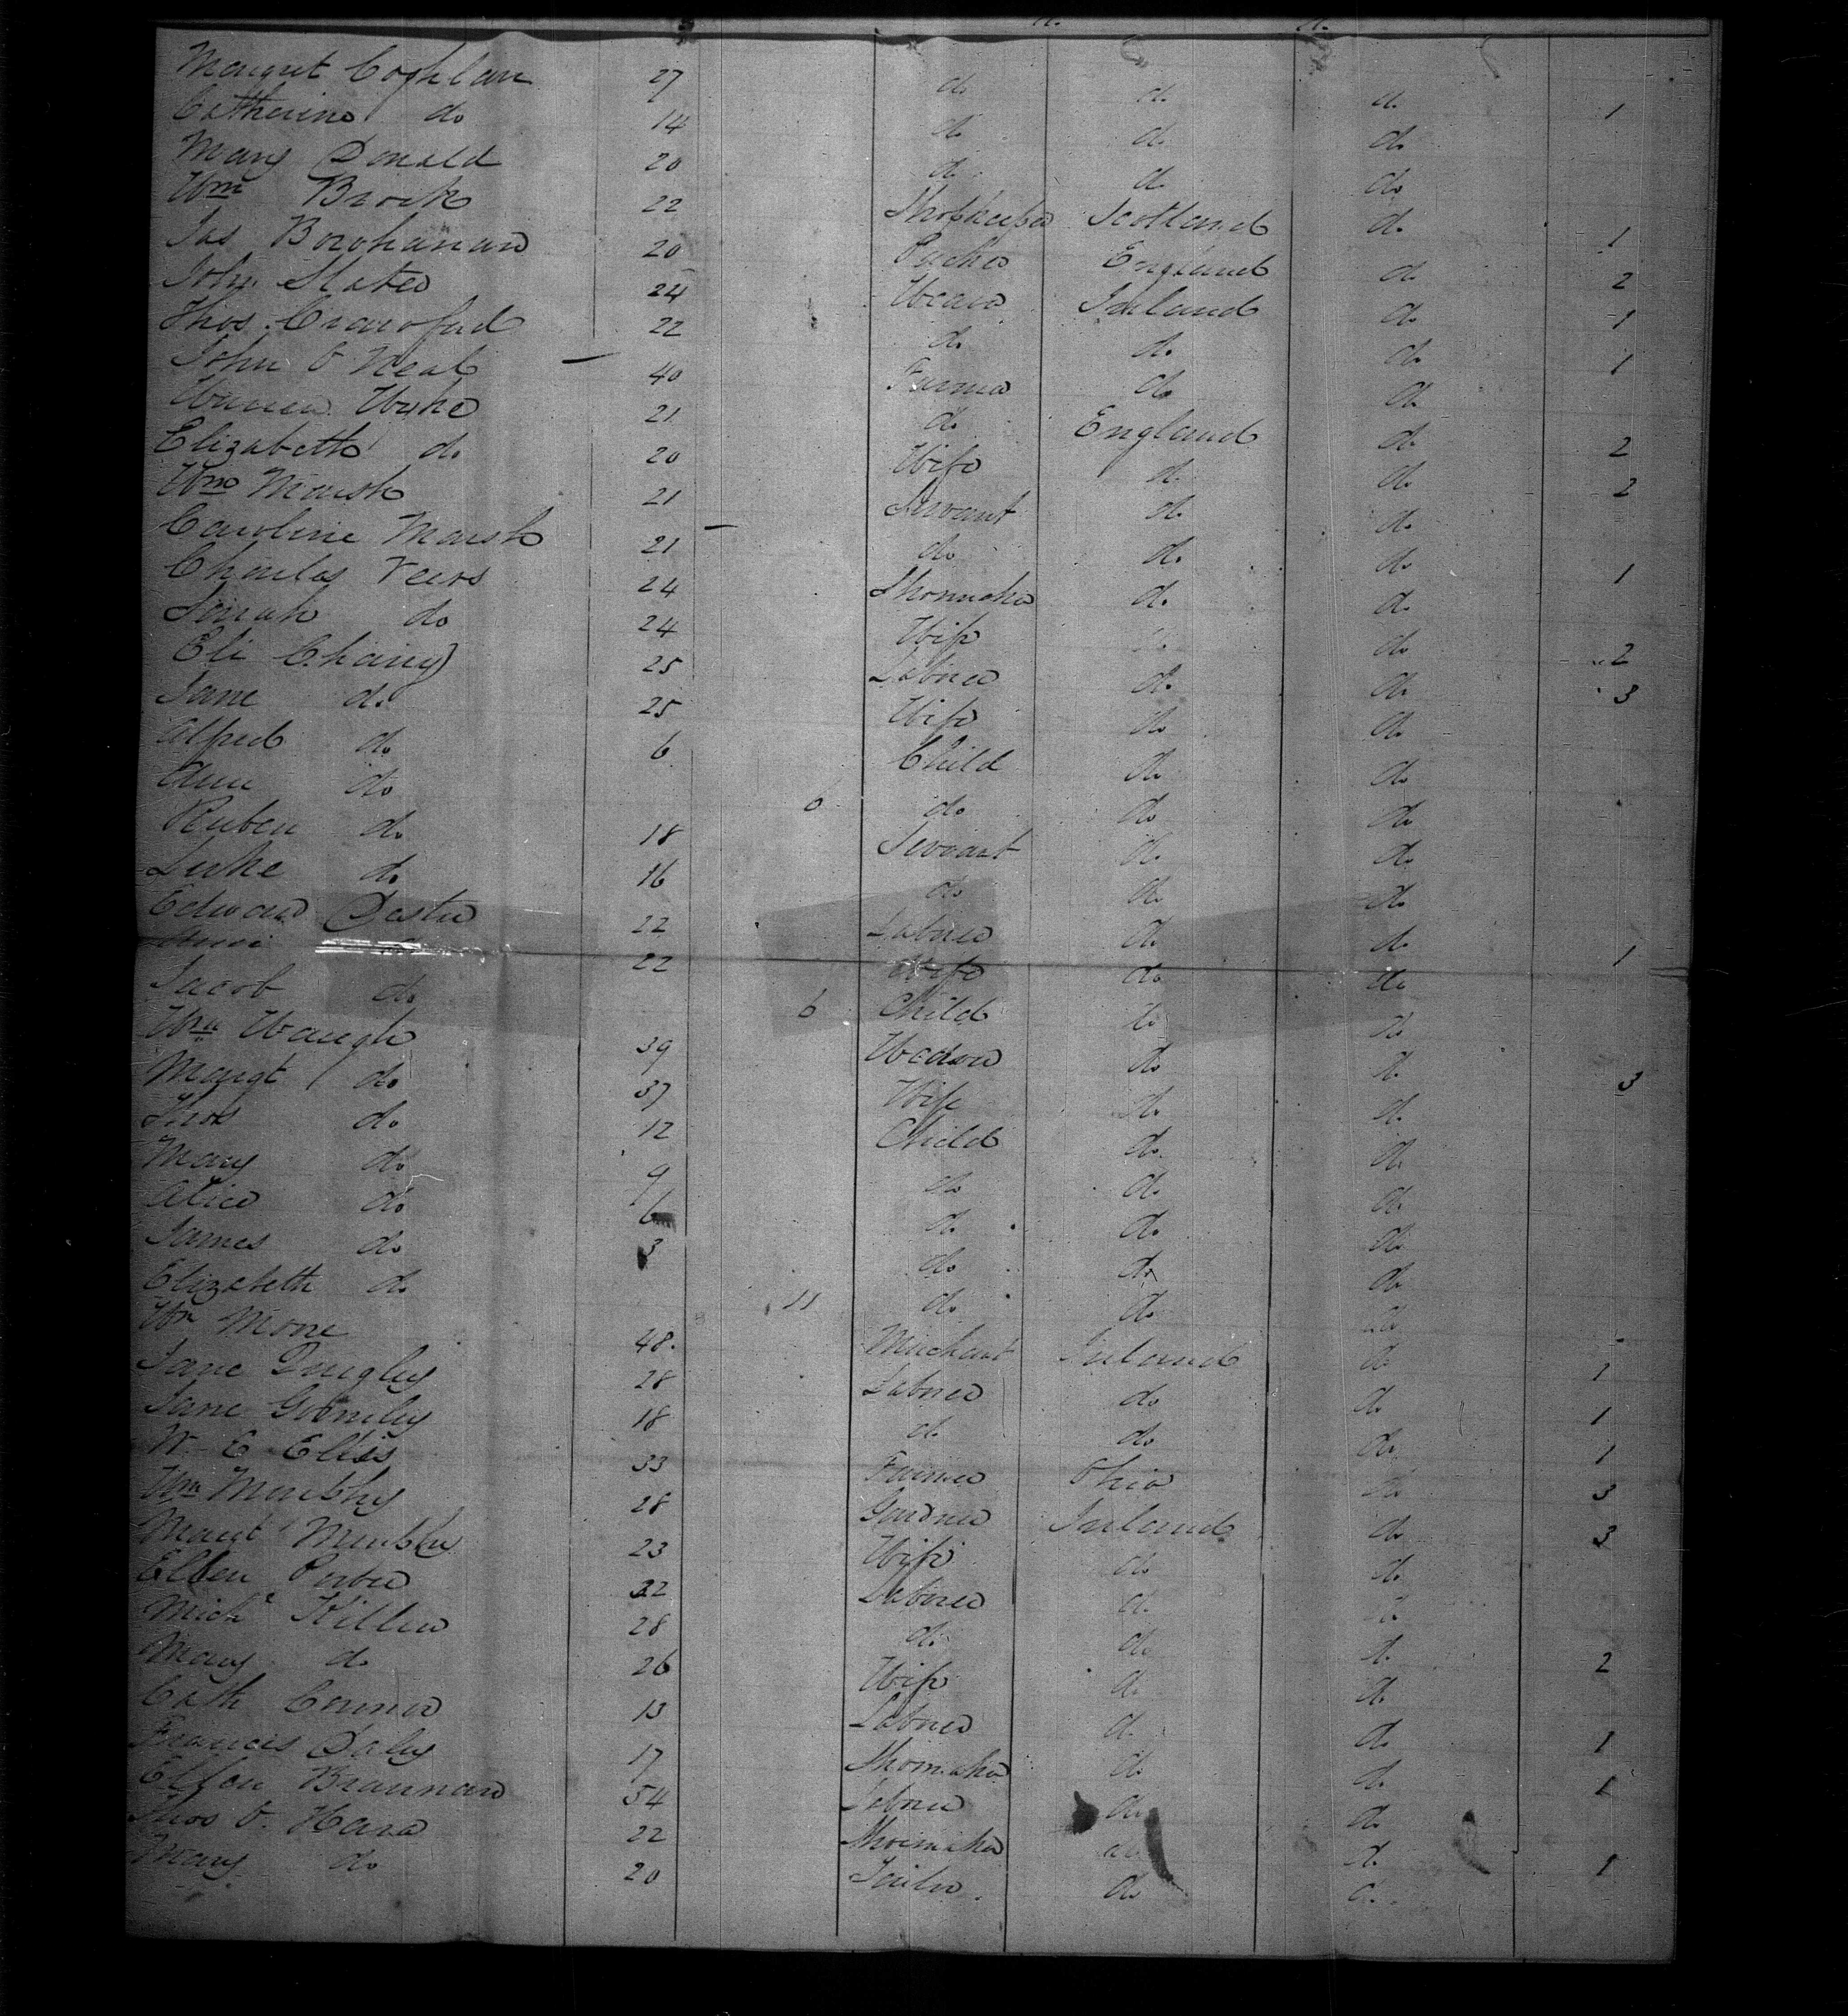 Margret Coghlan 27 do do do 1
Catherine do 14 do do do
Mary Donald 20 do do do
Wm Brock 22 Shopkeeper Scotland do 1
Jas 20 England do 2
John Slater 24 Weaver Ireland do 1
Thos Crawford 22 do do do 1
John O Neal 40 Farmer do do
21 do England do 2
Elizabeth do 20 Wife do do 2
Wm Marsh 21 Servant do do
Caroline Marsh 21 do do do 1
Charles Veers 24 Shoemaker do do
Sarah do 24 Wife do do 2
Eli Chaney 25 Laborer do do 3
Jane do 25 Wife do do
Alfred do 6 Child do do
Ann do 6 do do do
Ruben do 18 Servant do do
Luke do 16 do do do
Edward 22 Laborer do do 1
do 22 Wife do do
Jacob do 6 Child do do
Wm Waugh 39 do do 3
Margt do 37 Wife do do
Thos do 12 Child do do
Mary do 9 do do do
Alice do 6 do do do
James do 3 do do do
Elizabeth do 11 do do do
Wm Mone 48 Merchant Ireland do 1
Jane Quigley 28 Laborer do do 1
Jane Gormley 18 do do do 1
W. E Ellis 33 Farmer Ohio do 3
Wm Murphy 28 Gardner Ireland do 3
Margt Murphy 23 Wife do do
Ellen Porter 22 Laborer do do
Michl Killen 28 do do do 2
Mary do 26 Wife do do
Cath Connor 13 Laborer do do 1
Francis Daly 17 Shoemaker do do 1
Ellen Brannan 54 Laborer do do
Thos O. Hara 22 Shoemaker do do 1
Mary do 20 Tailor do do